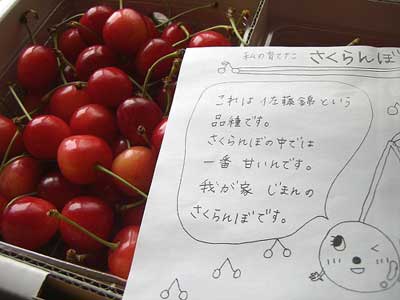 私の育てたこ さくらんぼ
これは佐藤錦という
品種です。
さくらんぼの中では
一番甘いんです。
我が家じまんの
さくらんぼです。